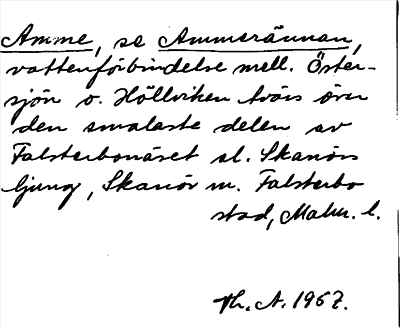 Amme, se Ammerännan,
vattenförbindelse mell. Öster-
sjön o. Höllviken tvärs över
den smalaste delen av
Falsterbonäset sl. Skanörs
ljung, Skanör m. Falsterbo
stad, Malm. l.
Th. A. 1967.